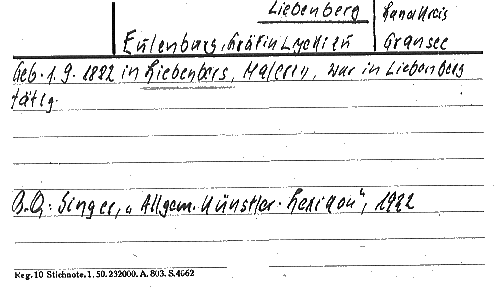 Liebenberg
Landkreis
Eulenburg, Gräfin Lyckien
Gransee
Geb. 1.9.1882 in Liebenberg, Malerin, war in Liebenberg
tätig.
B.Q.: Singer, „Allgem. Künstler-Lexikon", 1922
Reg. 10 Stichnote. 1. 50. 232000. A. 803. S. 4662